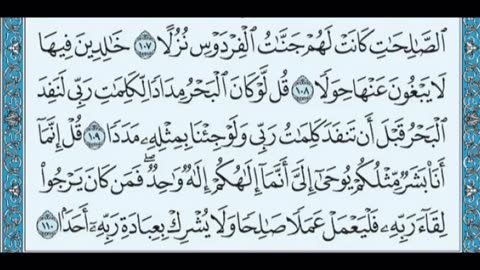 ٱلصَّٰلِحَٰتِ كَانَتْ لَهُمْ جَنَّٰتُ ٱلْفِرْدَوْسِ نُزُلًا ١٠٧ خَٰلِدِينَ فِيهَا
لَا يَبْغُونَ عَنْهَا حِوَلًا ١٠٨ قُل لَّوْ كَانَ ٱلْبَحْرُ مِدَادًا لِّكَلِمَٰتِ رَبِّى لَنَفِدَ
ٱلْبَحْرُ قَبْلَ أَن تَنفَدَ كَلِمَٰتُ رَبِّى وَلَوْ جِئْنَا بِمِثْلِهِۦ مَدَدًا ١٠٩ قُلْ إِنَّمَآ
أَنَا۠ بَشَرٌ مِّثْلُكُمْ يُوحَىٰٓ إِلَىَّ أَنَّمَآ إِلَٰهُكُمْ إِلَٰهٌ وَٰحِدٌ ۖ فَمَن كَانَ يَرْجُوا۟
لِقَآءَ رَبِّهِۦ فَلْيَعْمَلْ عَمَلًا صَٰلِحًا وَلَا يُشْرِكْ بِعِبَادَةِ رَبِّهِۦٓ أَحَدًۢا ١١٠